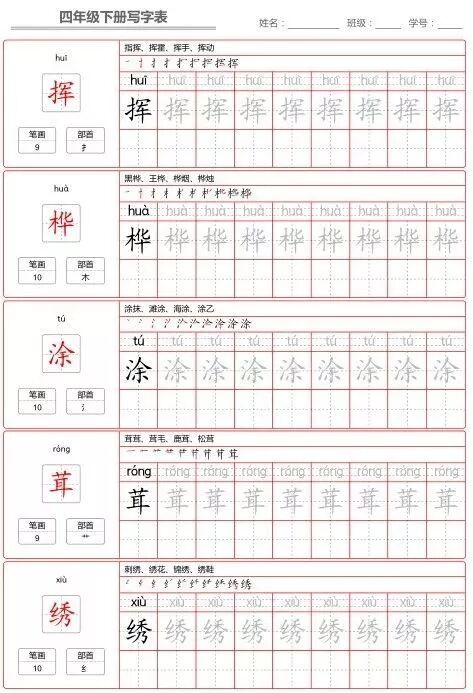 四年级下册写字表 姓名： 班级： 学号：
huī
挥
笔画 部首
9 扌
指挥、挥霍、挥手、挥动
huī huī huī huī huī huī huī huī
挥 挥 挥 挥 挥 挥 挥 挥
huà
桦
笔画 部首
10 木
黑桦、王桦、桦烟、桦烛
huà huà huà huà huà huà huà huà
桦 桦 桦 桦 桦 桦 桦 桦
tú
涂
笔画 部首
10 氵
涂抹、滩涂、海涂、涂乙
tú tú tú tú tú tú tú tú
涂 涂 涂 涂 涂 涂 涂 涂
róng
茸
笔画 部首
9 艹
茸茸、茸毛、鹿茸、松茸
róng róng róng róng róng róng róng róng
茸 茸 茸 茸 茸 茸 茸 茸
xiù
绣
笔画 部首
10 纟
刺绣、绣花、锦绣、绣鞋
xiù xiù xiù xiù xiù xiù xiù xiù
绣 绣 绣 绣 绣 绣 绣 绣